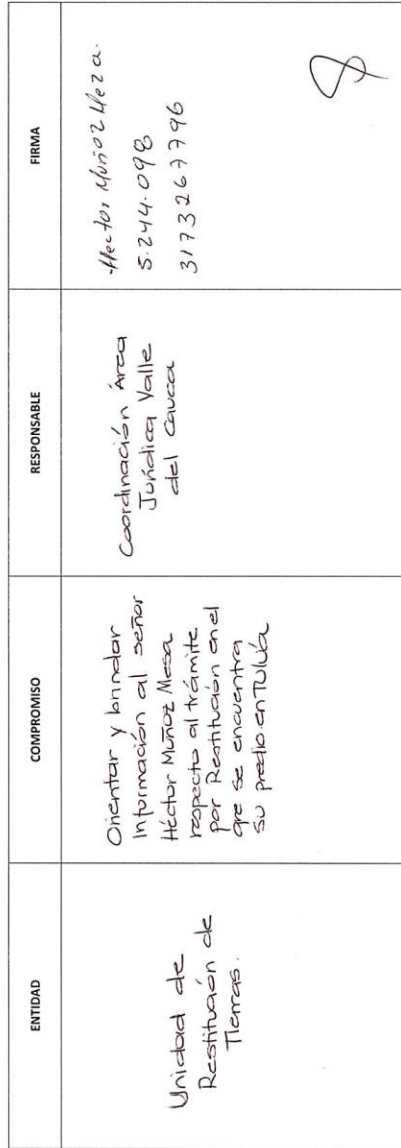 ENTIDAD
COMPROMISO
RESPONSABLE
FIRMA
Unidad de
Restitución de
Tierras.
Orientar y brindar
Información al señor
Héctor Muñoz Mesa
respecto al trámite
por Restitución en el
que se encuentra
su predio en Tulúa
Coordinación Área
Jurídica Valle
del Cauca
Hector Muñoz Meza.
5.244.098
3173267796